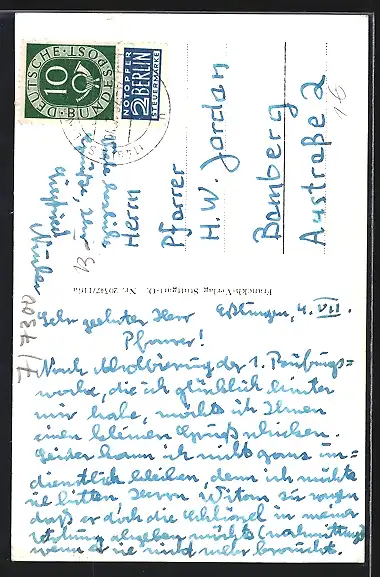 DEUTSCHE · BUNDESPOST
10
NOTOPFER
2 BERLIN
STEUERMARKE
Herrn
Pfarrer
H.W. Jordan
Bamberg
Austraße 2
16
13
Franckh-Verlag Stuttgart-O. Nr.
Eßlingen, 4. VII.
Sehr geehrter Herr
Pfarrer!
Nach Absolvierung der 1. Prüfungs=
woche, die ich glücklich hinter
mir habe, möchte ich Ihnen
einen kleinen Gruß schicken.
Leider kann ich nicht ganz un=
dienstlich bleiben, denn ich möchte
sie bitten Herrn zu sagen
daß er doch die Schlüssel in meiner
Wohnung abgeben möchte
wenn er sie nicht mehr braucht.
Mit
Ihr